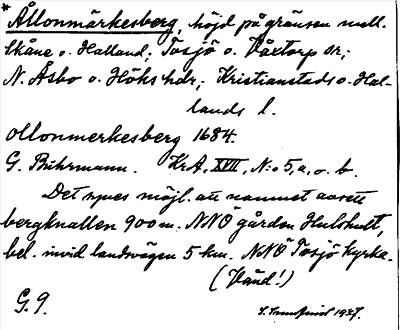 * Ållonmärkesberg, höjd på gränsen mell.
Skåne o. Halland; Tosjö o. Våxtorp sr;
N. Åsbo o. Höks hdr; Kristianstads o. Hal-
lands l.
Ollonmerkesberg 1684.
G. Buhrmann. Kr.A. XVII, N:o 5, a, o. b.
Det synes möjl. att namnet avsett
bergknallen 900 m. NNÖ gården Hulshult,
bel. invid landsvägen 5 km. NNÖ Tosjö kyrka.
(Vänd!)
G. 9. 1927.